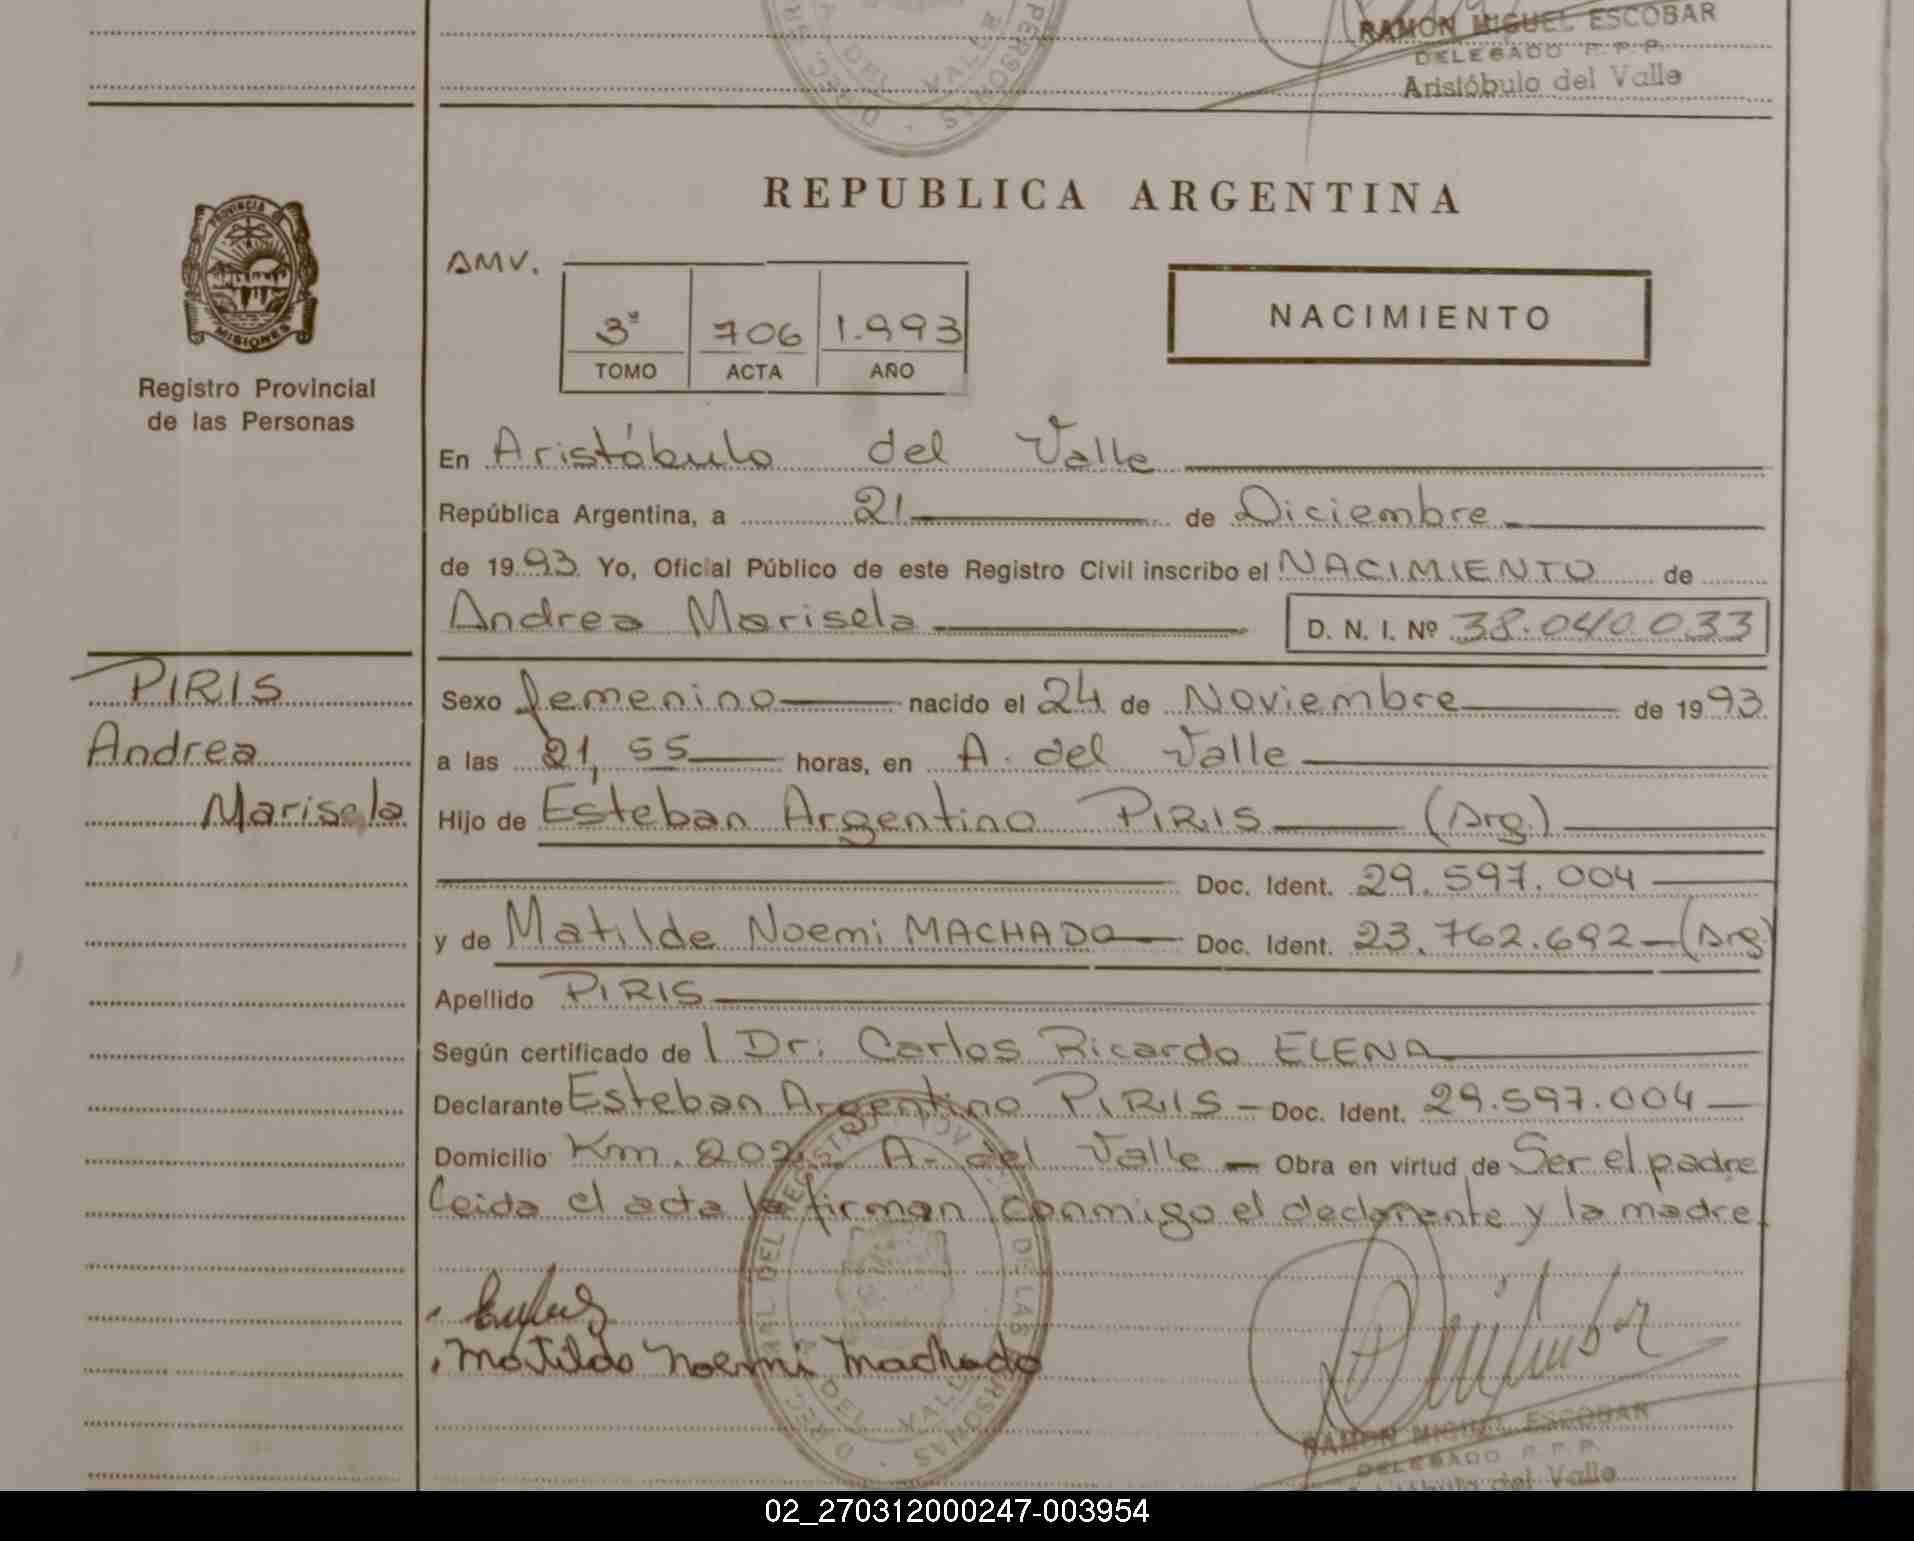 RAMON MIGUEL ESCOBAR
DELEGADO R. P. P.
Aristóbulo del Valle
DEL VALLE
REPUBLICA ARGENTINA
PROVINCIA DE
MISIONES
Registro Provincial
de las Personas
AMV.
3º 706 1.993
TOMO ACTA AÑO
NACIMIENTO
En Aristóbulo del Valle
República Argentina, a 21 de Diciembre
de 1993 Yo, Oficial Público de este Registro Civil inscribo el NACIMIENTO de
Andrea Marisela D. N. I. Nº 38.040.033
PIRIS
Andrea
Marisela
Sexo femenino nacido el 24 de Noviembre de 1993
a las 21,55 horas, en A. del Valle
Hijo de Esteban Argentino PIRIS (Arg.)
Doc. Ident. 29.597.004
y de Matilde Noemi MACHADO Doc. Ident. 23.762.692 (Arg)
Apellido PIRIS
Según certificado de Dr: Carlos Ricardo ELENA
Declarante Esteban Argentino PIRIS Doc. Ident. 29.597.004
Domicilio Km. 202 A. del Valle Obra en virtud de Ser el padre
Leida el acta la firman conmigo el declarante y la madre.
Matilde Noemi Machado
DEL VALLE
RAMON MIGUEL ESCOBAR
DELEGADO R. P. P.
Aristóbulo del Valle
02_270312000247-003954